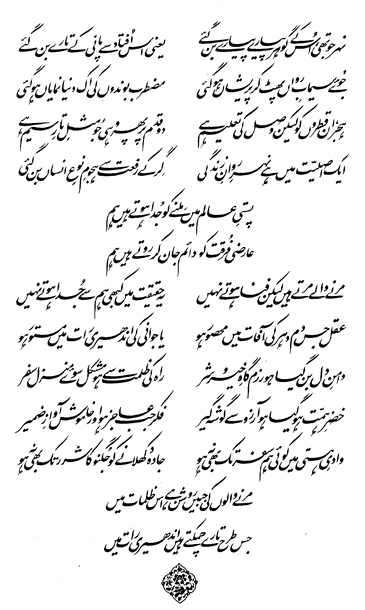 نہر جو تھی اس کے گوہر پیارے پیارے بن گئے یعنی اس اُفتاد سے پانی کے تارے بن گئے
جوئے سیماب رواں پھٹ کر پریشاں ہوگئی مضطرب بوندوں کی اک دنیا نمایاں ہوگئی
ہجر ان قطروں کو لیکن وصل کی تعلیم ہے دو قدم پر پھر وہی جو مثلِ تارِ سیم ہے
ایک اصلیّت میں ہے نہرِ روانِ زندگی گر کے رفعت سے ہجومِ نوعِ انساں بن گئی
پستیِ عالم میں ملنے کو جُدا ہوتے ہیں ہم
عارضی فرقت کو دائم جان کر روتے ہیں ہم
مرنے والے مرتے ہیں لیکن فنا ہوتے نہیں یہ حقیقت میں کبھی ہم سے جُدا ہوتے نہیں
عقل جس دم دہر کی آفات میں محصور ہو یا جوانی کی اندھیری رات میں مستور ہو
دامنِ دل بن گیا ہو رزم گاہِ خیر و شر راہ کی ظلمت سے ہو مشکل سوئے منزل سفر
خضرِ ہمّت ہو گیا ہو آرزو سے گوشہ گیر فکر جب عاجز ہو اور خاموش آوازِ ضمیر
وادیِ ہستی میں کوئی ہم سفر تک بھی نہ ہو جادہ دکھلانے کو جگنو کا شرر تک بھی نہ ہو
مرنے والوں کی جبیں روشن ہے اس ظلمات میں
جس طرح تارے چمکتے ہیں اندھیری رات میں